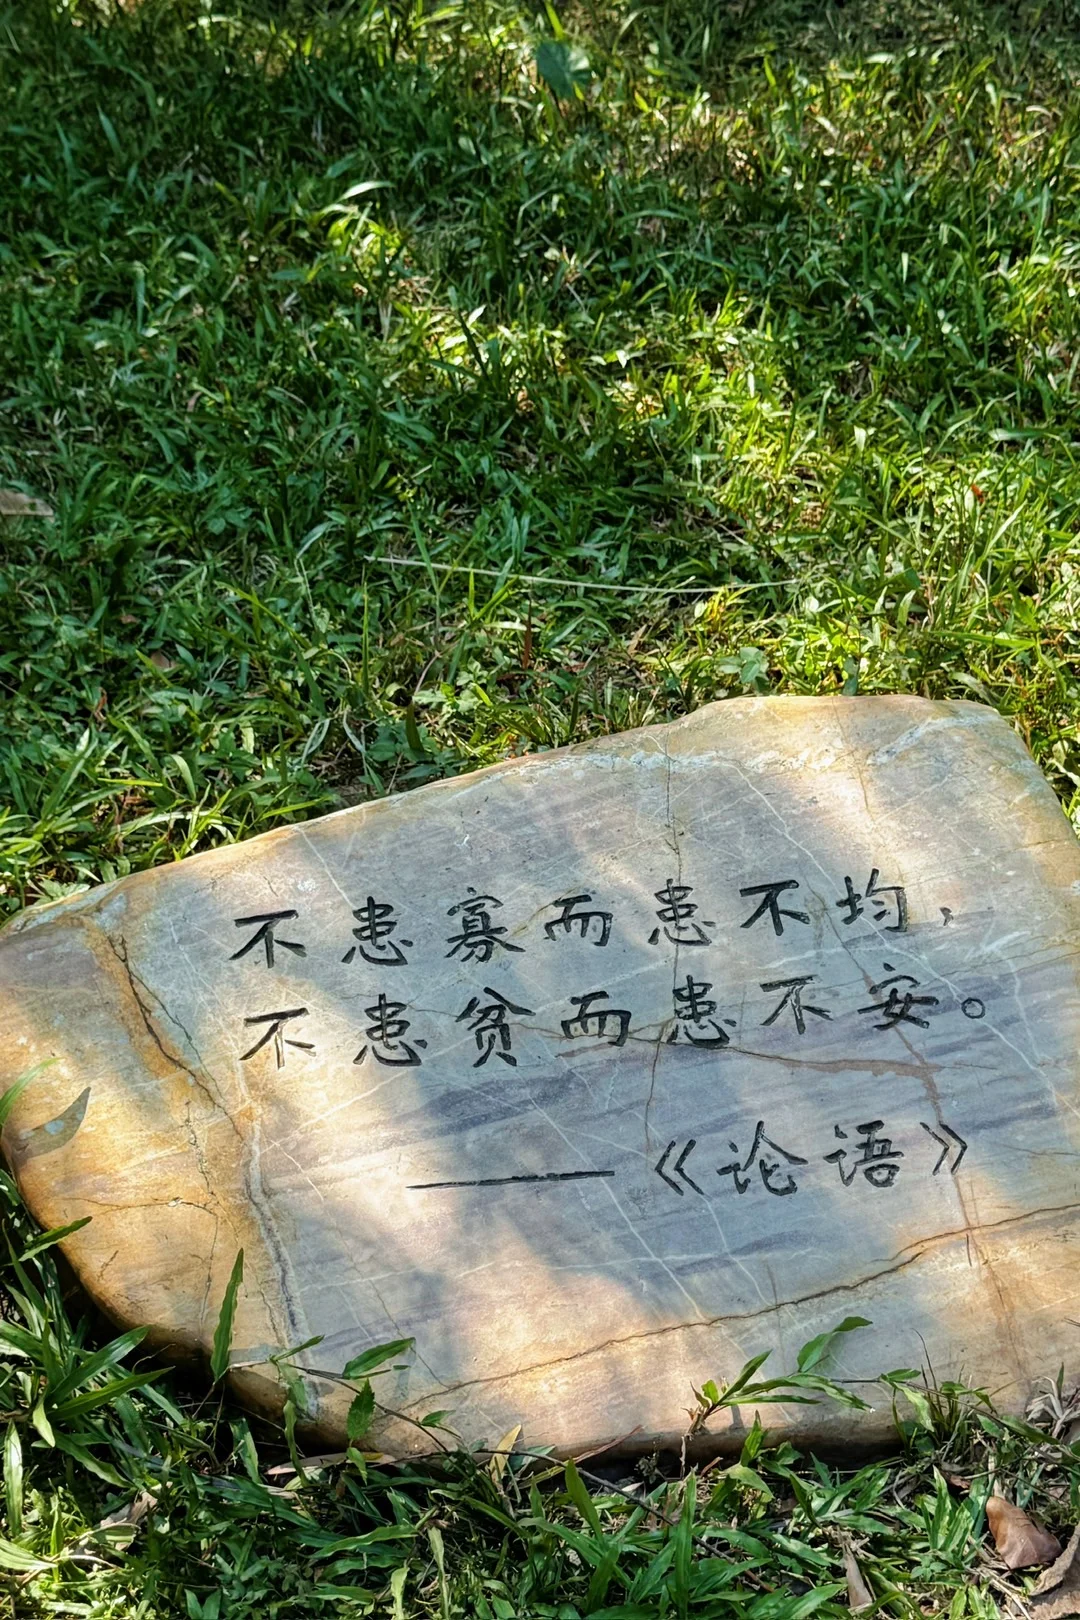 不患寡而患不均，
不患贫而患不安。
——《论语》